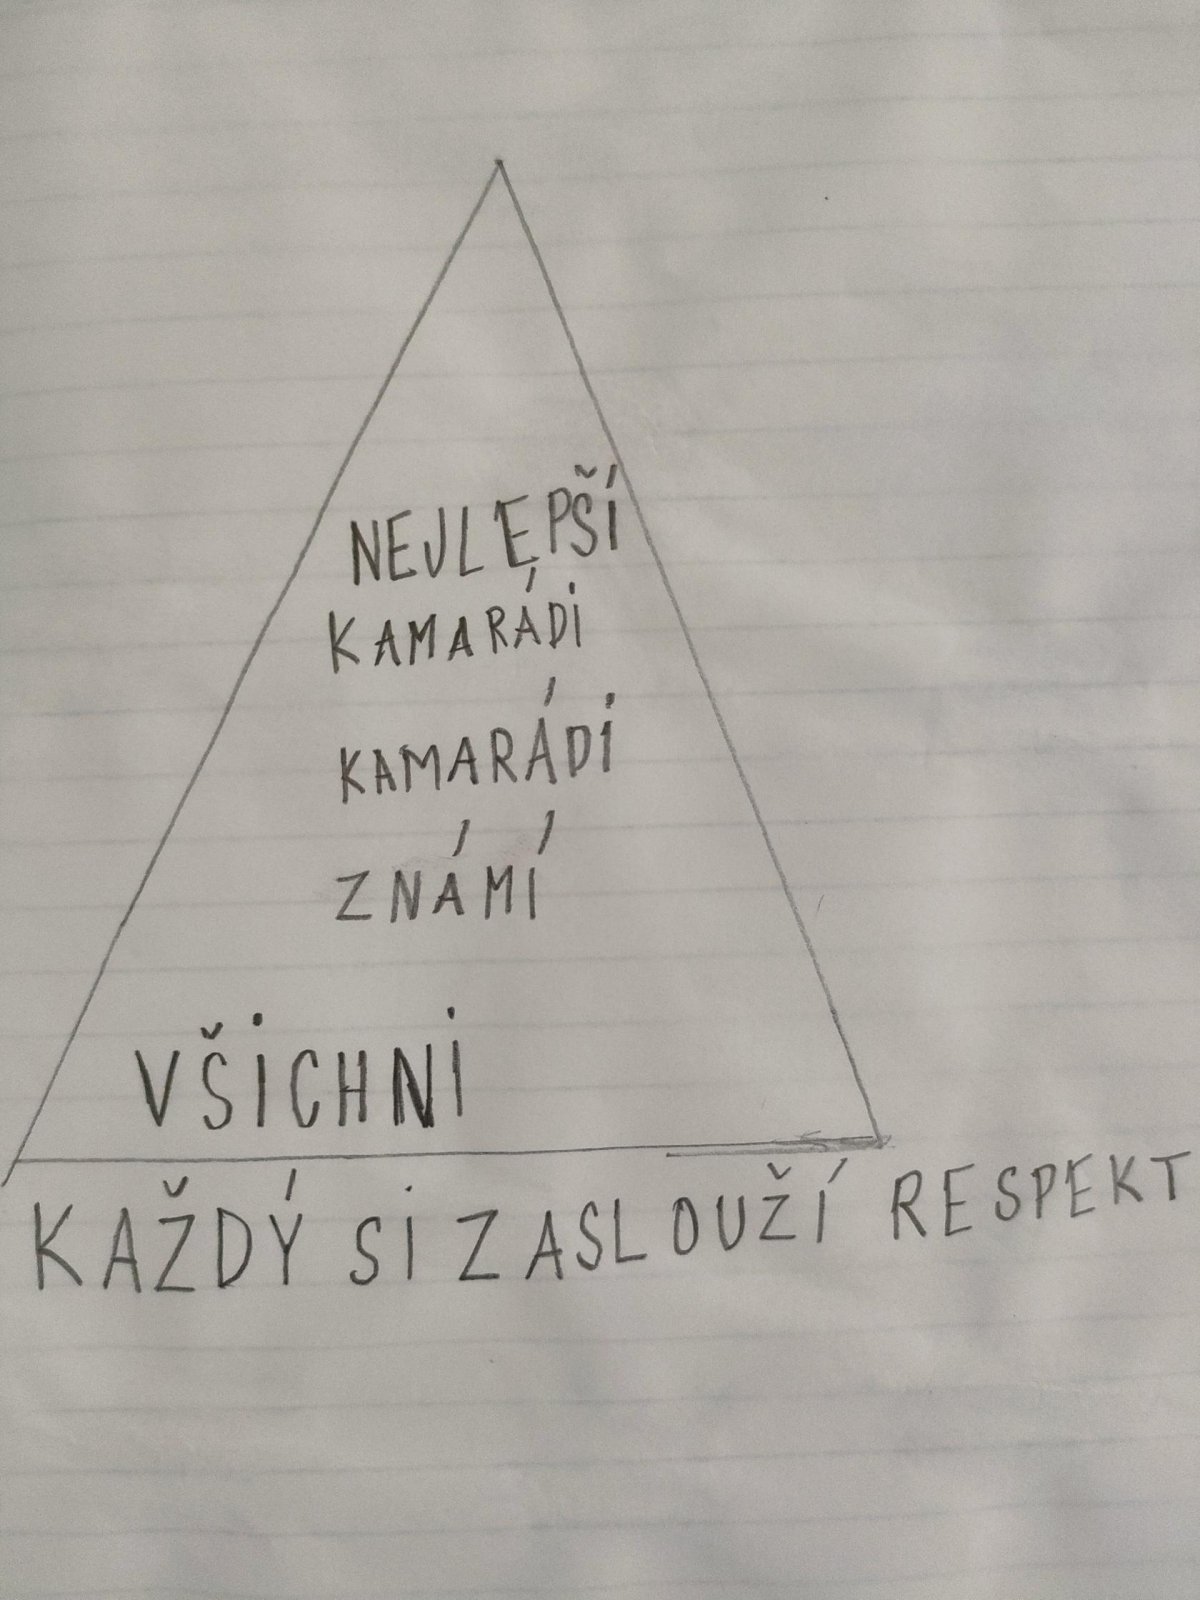 NEJLEPŠÍ
KAMARÁDI
KAMARÁDI
ZNÁMÍ
VŠICHNI
KAŽDÝ SI ZASLOUŽÍ RESPEKT